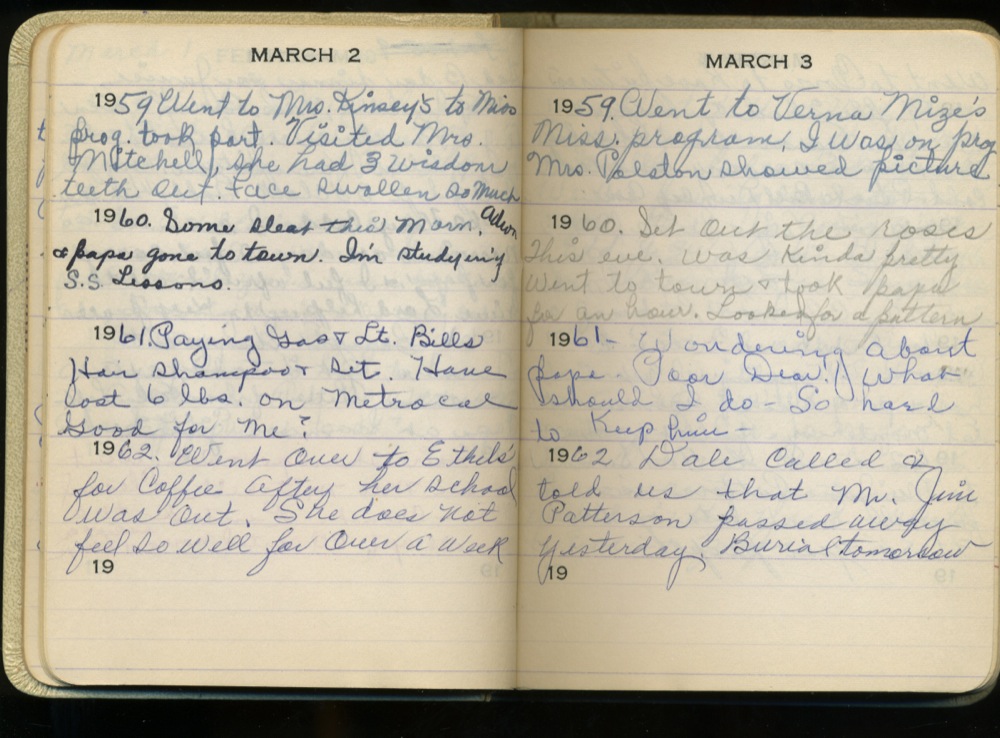 MARCH 2
1959 Went to Mrs. Kinsey's to Miss
prog. took part. Visited Mrs.
Mitchell, she had 3 wisdom
teeth out. face swollen so much
1960. Some sleat this Morn.
& papa gone to town. I'm studying
S.S Lessons.
1961. Paying Gas & Lt. Bills
Hair Shampoo & Set. Have
lost 6 lbs. on Metrocal
Good for Me!
1962. Went over to Ethel's
for Coffee after her school
was out. She does not
feel so well for over a week
19
MARCH 3
1959. Went to Verna Mize's
Miss. program. I was on prog
Mrs. showed picture
1960. Set out the roses
This eve. was Kinda pretty
Went to town & took papa
for an hour. Looked for a pattern
1961- Wondering about
papa. Poor Dear! What
should I do - So hard
to Keep him -
1962 Dale Called &
told us that Mr. Jim
Patterson passed away
yesterday. Burial tomorrow
19